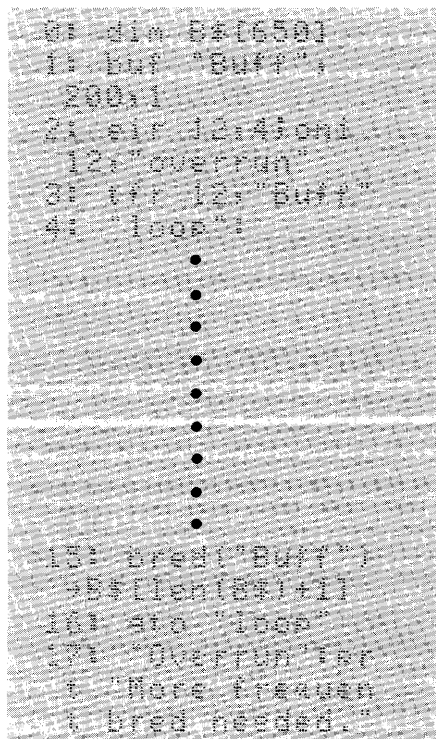 0: dim B$[650]
1: buf "Buff",
200,1
2: eir 12,4;oni
12,"overrun"
3: tfr 12,"Buff"
4: "loop":
15: bred("Buff")
→B$[len(B$)+1]
16: gto "loop"
17: "Overrun":wr
t "More frequen
t bred needed."